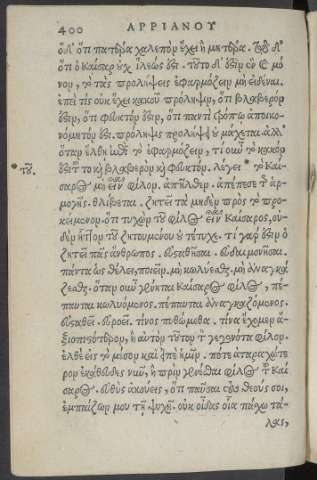 400 ΑΡΡΙΑΝΟΥ
οὐδ' ὅτι πατέρα χαλεπὸν ἔχει ἢ μητέρα. τοῦτο δ'
ὅτι ὁ Καῖσαρ οὐχ ἵλεώς ἐστι. τοῦτο δ' ἐστὶν ἓν καὶ μό
νον, τὸ τὰς προλήψεις ἐφαρμόζειν μὴ εἰδέναι.
ἐπεὶ τίς οὐκ ἔχει κακοῦ πρόληψιν, ὅτι βλαβερόν
ἐστιν, ὅτι φευκτόν ἐστιν, ὅτι παντὶ τρόπῳ ἀποικο-
νόμητόν ἐστι. πρόληψις προλήψει οὐ μάχεται ἀλλ'
ὅταν ἔλθῃ ἐπὶ τὸ ἐφαρμόζειν, τί οὖν τὸ κακόν
ἐστι τοῦτο καὶ βλαβερὸν καὶ φευκτόν. λέγει * τὸ Καί-
* τοῦ.
σαρος μὴ εἶναι φίλον. ἀπῆλθεν. ἀπέπεσε τῆς ἐφαρ-
μογῆς. θλίβεται. ζητεῖ τὰ μηδὲν πρὸς τὸ προ-
κείμενον. ὅτι τυχὼν τοῦ φίλος εἶναι Καίσαρος, οὐ-
δὲν ἧττον τοῦ ζητουμένου οὐ τέτυχε. τί γάρ ἐστιν ὃ
ζητεῖ πᾶς ἄνθρωπος. εὐσταθῆσαι. εὐδαιμονῆσαι.
πάντα ὡς θέλει, ποιεῖν. μὴ κωλύεσθαι. μὴ ἀναγκά
ζεσθαι. ὅταν οὖν γένηται Καίσαρος φίλος, πέ-
παυται κωλυόμενος. πέπαυται ἀναγκαζόμενος.
εὐσταθεῖ. εὐροεῖ. τίνος πυθώμεθα. τίνα ἔχομεν ἀ-
ξιοπιστότερον, ἢ αὐτὸν τοῦτον τὸν γεγονότα φίλον.
ἐλθὲ εἰς τὸ μέσον καὶ εἰπὲ ἡμῖν. πότε ἀταραχώτε
ρον ἐκάθευδες νῦν, ἢ πρὶν γενέσθαι φίλος τοῦ Καί-
σαρος. εὐθὺς ἀκούεις, ὅτι παῦσαι τοὺς θεούς σοι,
ἐμπαίζων μου τῇ ψυχῇ. οὐκ οἶδας οἷα πάσχω τά-
λας,